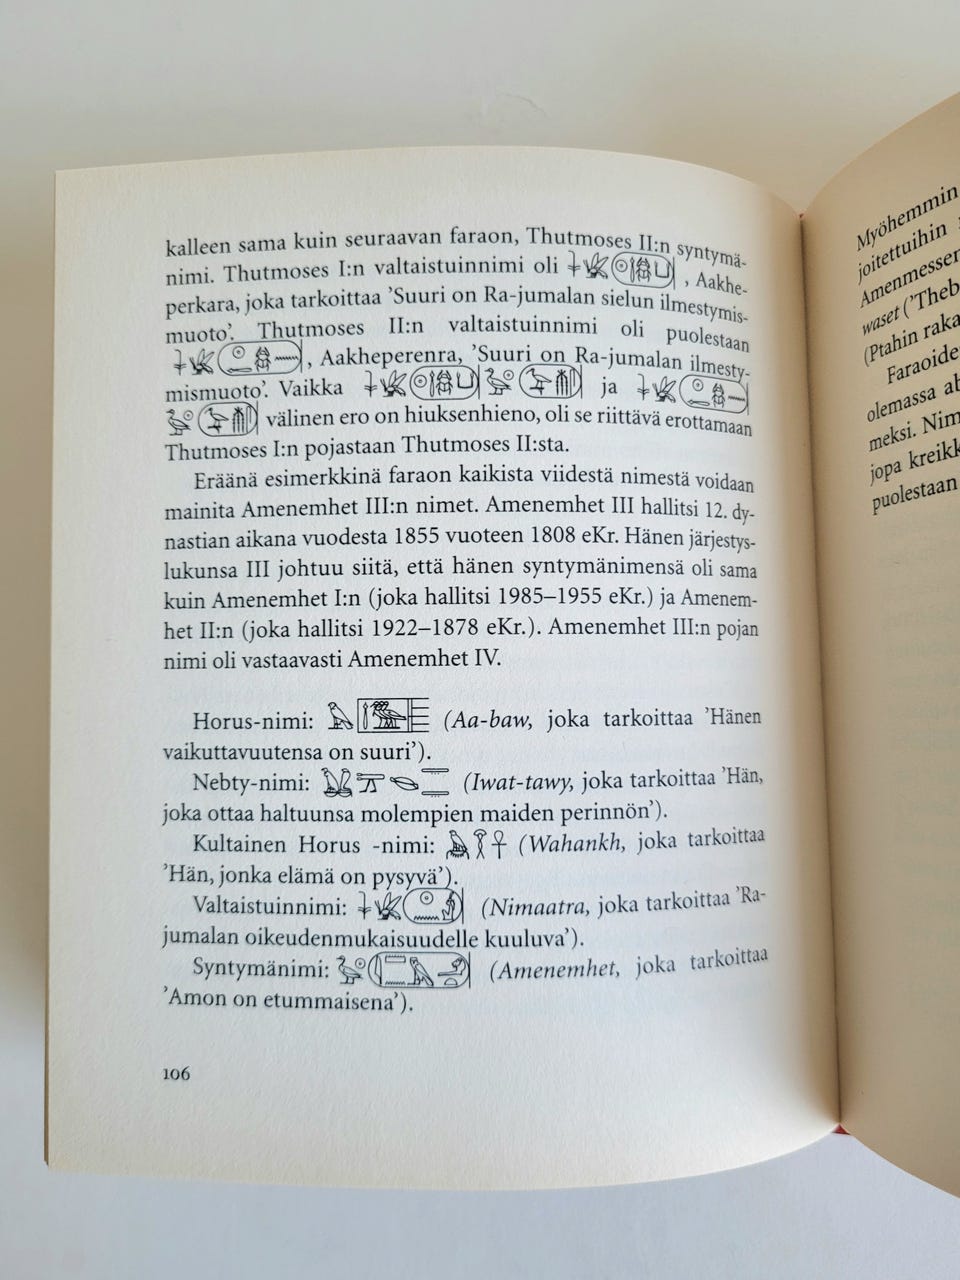 kalleen sama kuin seuraavan faraon, Thutmoses II:n syntymä-
nimi. Thutmoses I:n valtaistuinnimi oli , Aakhe-
perkara, joka tarkoittaa ’Suuri on Ra-jumalan sielun ilmestymis-
muoto’. Thutmoses II:n valtaistuinnimi oli puolestaan
, Aakheperenra, ’Suuri on Ra-jumalan ilmesty-
mismuoto’. Vaikka ja
välinen ero on hiuksenhieno, oli se riittävä erottamaan
Thutmoses I:n pojastaan Thutmoses II:sta.
Eräänä esimerkkinä faraon kaikista viidestä nimestä voidaan
mainita Amenemhet III:n nimet. Amenemhet III hallitsi 12. dy-
nastian aikana vuodesta 1855 vuoteen 1808 eKr. Hänen järjestys-
lukunsa III johtuu siitä, että hänen syntymänimensä oli sama
kuin Amenemhet I:n (joka hallitsi 1985–1955 eKr.) ja Amenem-
het II:n (joka hallitsi 1922–1878 eKr.). Amenemhet III:n pojan
nimi oli vastaavasti Amenemhet IV.
Horus-nimi: (Aa-baw, joka tarkoittaa ’Hänen
vaikuttavuutensa on suuri’).
Nebty-nimi: (Iwat-tawy, joka tarkoittaa ’Hän,
joka ottaa haltuunsa molempien maiden perinnön’).
Kultainen Horus -nimi: (Wahankh, joka tarkoittaa
’Hän, jonka elämä on pysyvä’).
Valtaistuinnimi: (Nimaatra, joka tarkoittaa ’Ra-
jumalan oikeudenmukaisuudelle kuuluva’).
Syntymänimi: (Amenemhet, joka tarkoittaa
’Amon on etummaisena’).
106
Myöhemmin
joitettuihin
Amenmessen
waset (’Theb
(Ptahin raka
Faraoide
olemassa ab
meksi. Nim
jopa kreikk
puolestaan